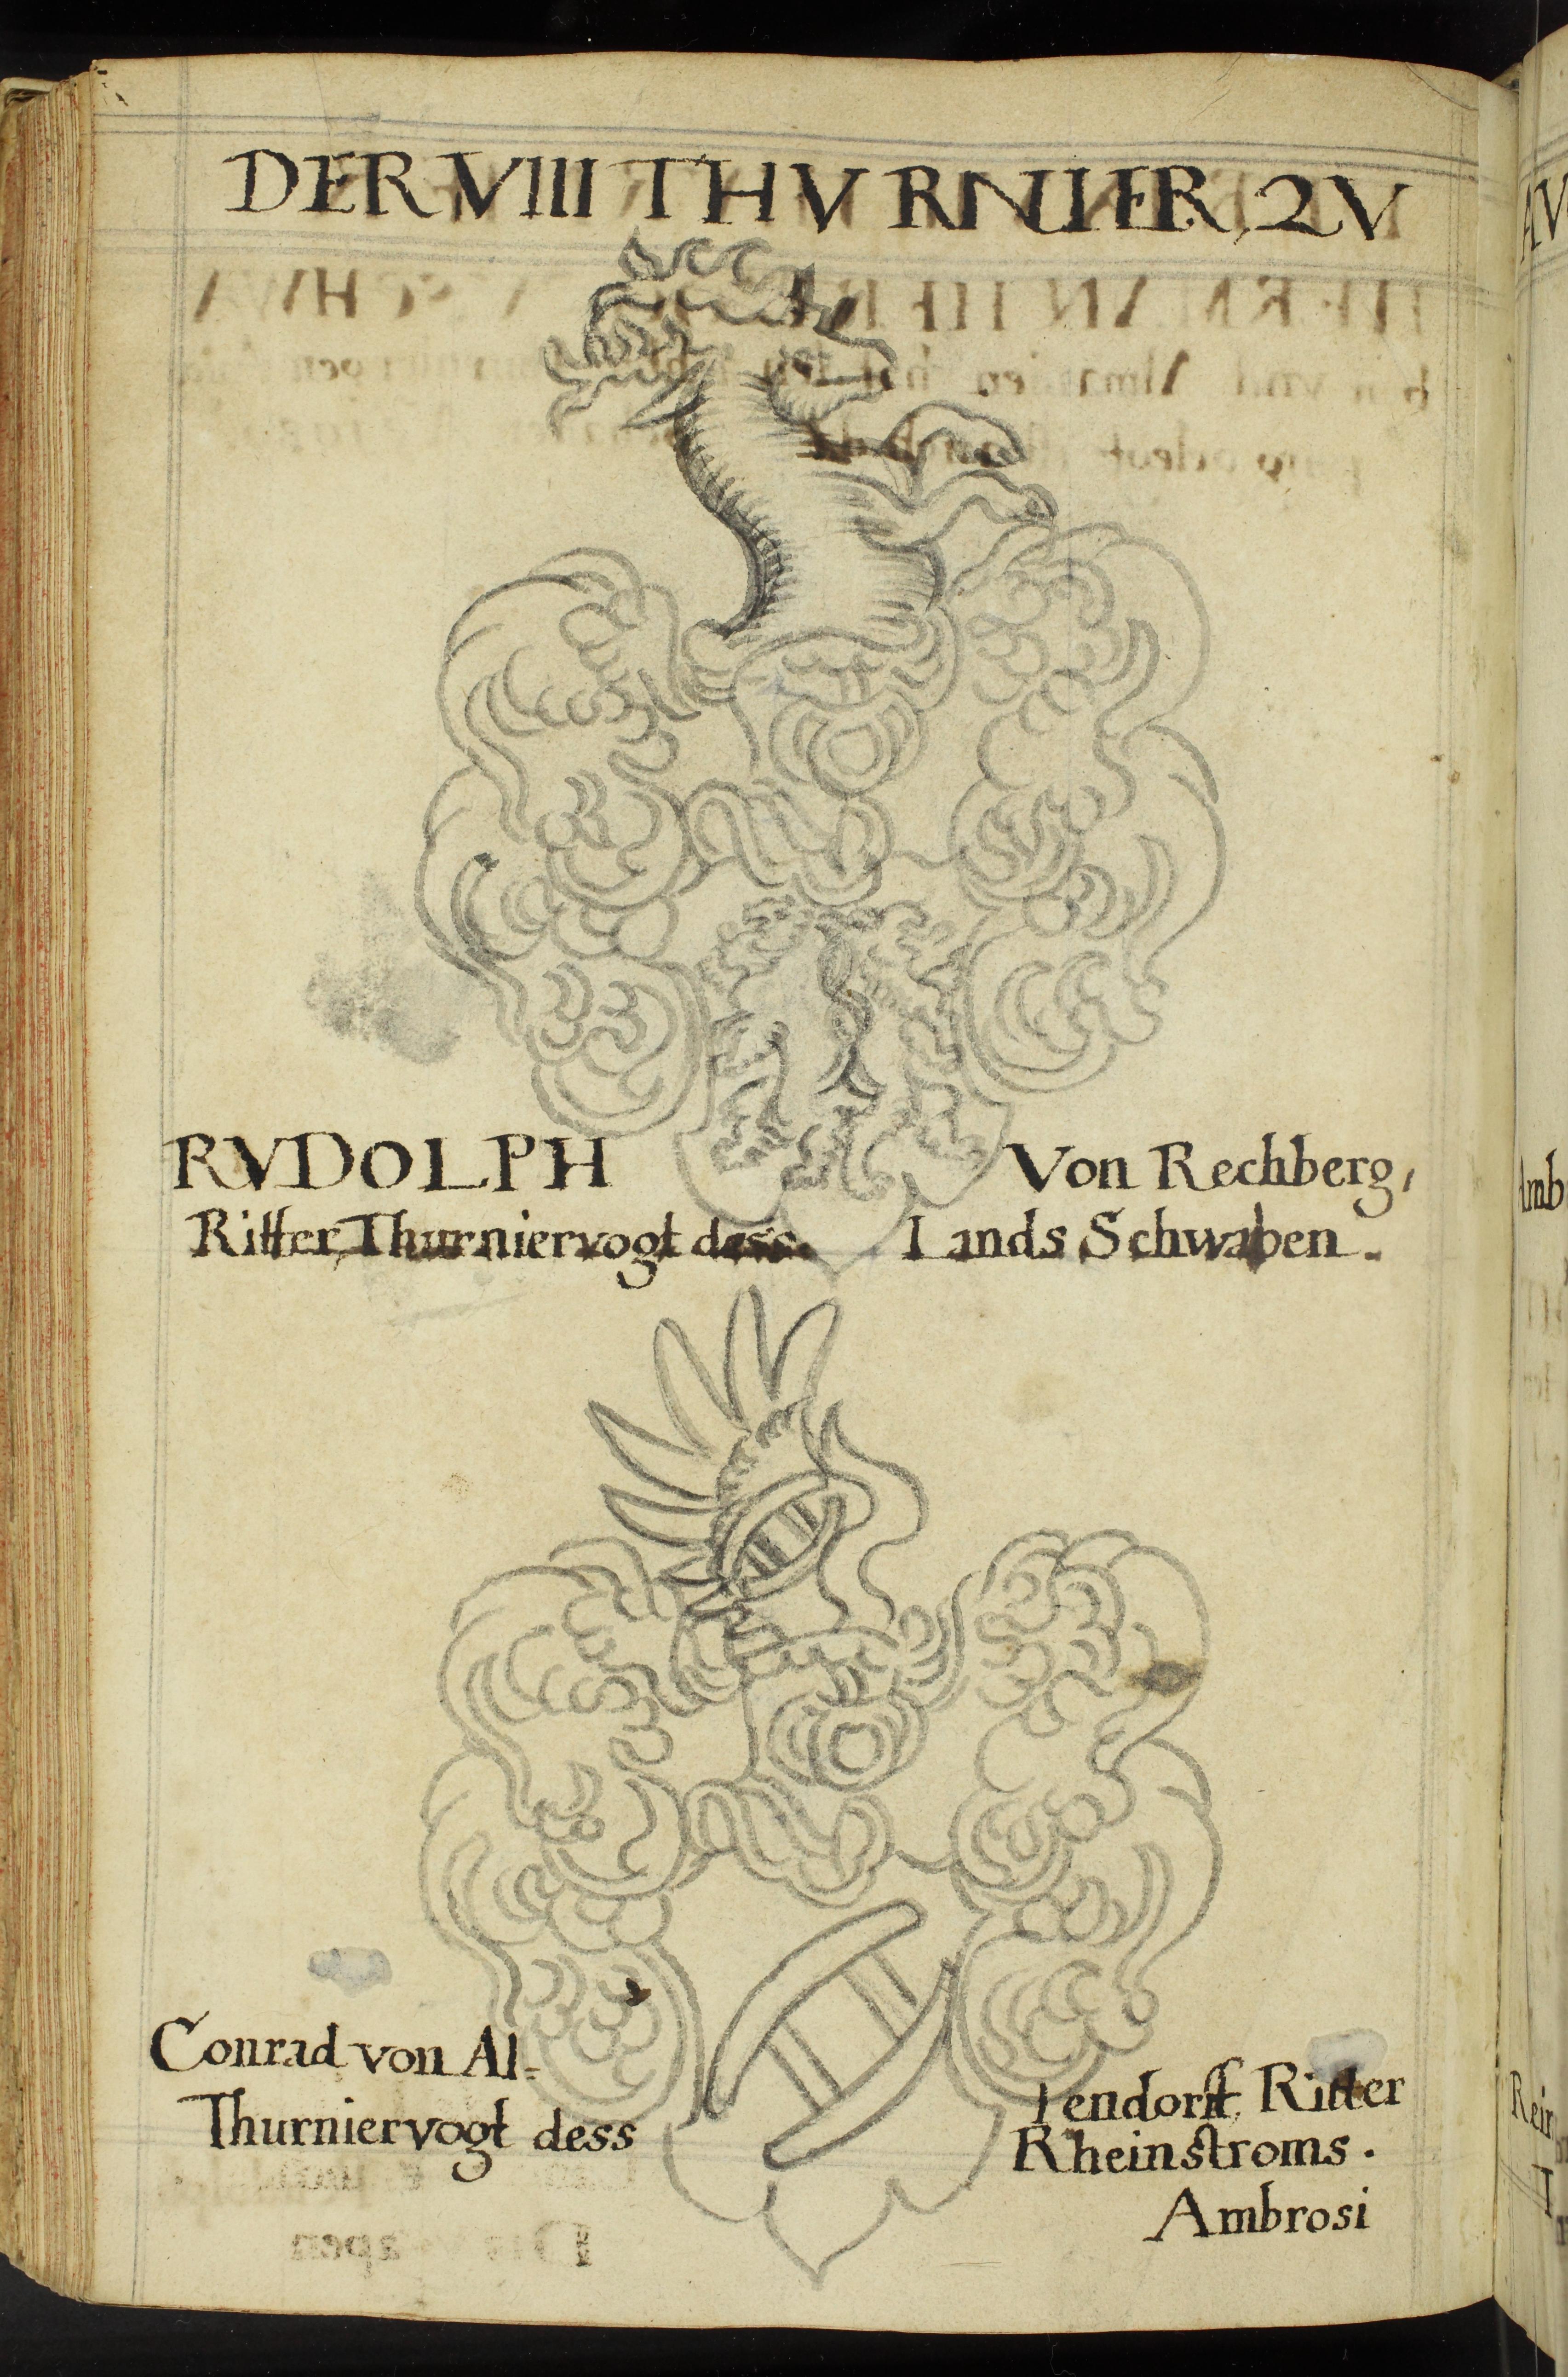 DER VIII THVRNIIER, ZV
RVDOLPH Von Rechberg,
Ritter, Thurniervogt dess Lands Schwaben.
Conrad von Al-
tendorff, Ritter
Thurniervogt dess Rheinstroms.
Ambrosi